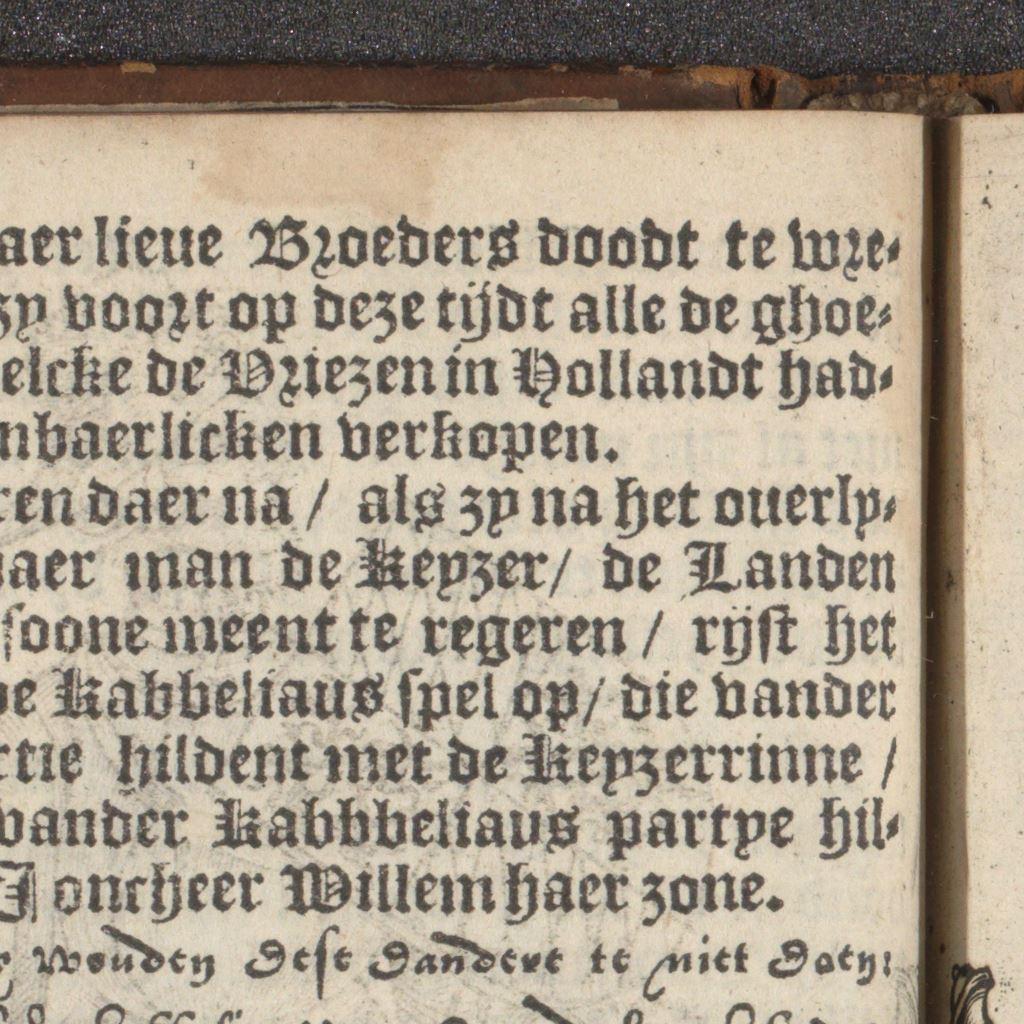 aer lieue Broeders doodt te wre-
zy voort op deze tijdt alle de ghoe-
elcke de Vriezen in Hollandt had-
nbaerlicken verkopen.
ren daer na / als zy na het ouerly-
aer man de Keyzer / de Landen
soone meent te regeren / rijst het
de Kabbeliaus spel op / die vander
rtie hildent met de Keyzerrinne /
vander Kabbbeliaus partye hil-
Joncheer Willem haer zone.
wouden dese dandere te niet doen: